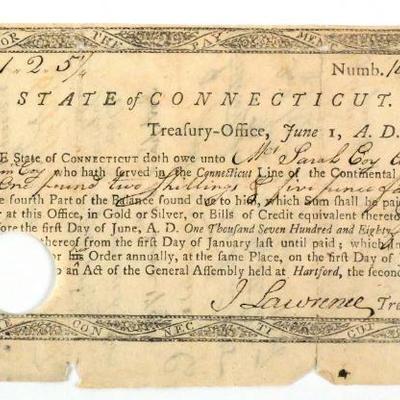 OR TRE PAY MEN
1. 2. 5¼ Numb.
STATE of CONNECTICUT.
Treasury-Office, June 1, A. D.
E State of CONNECTICUT doth owe unto Mrs Sarah Coy
Coy who hath served in the Connecticut Line of the Continental
One pound two shillings & five pence
e fourth Part of the Balance found due to him, which Sum shall be paid
er at this Office, in Gold or Silver, or Bills of Credit equivalent thereto
efore the first Day of June, A. D. One Thousand Seven Hundred and Eighty
thereof from the first Day of January last until paid; which
or his Order annually, at the same Place, on the first Day of J
to an Act of the General Assembly held at Hartford, the second
J Lawrence Tre
E CON NEC TI CUT